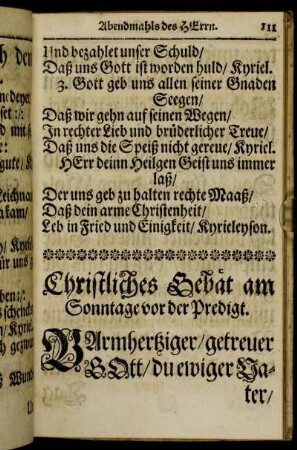 Abendmahls des HErrn. 111
Und bezahlet unser Schuld/
Daß uns Gott ist worden huld/ Kyriel.
3. Gott geb uns allen seiner Gnaden
Seegen/
Daß wir gehn auf seinen Wegen/
In rechter Lieb und brüderlicher Treue/
Daß uns die Speiß nicht gereue/ Kyriel.
HErr deinn Heilgen Geist uns immer
laß/
Der uns geb zu halten rechte Maaß/
Daß dein arme Christenheit/
Leb in Fried und Einigkeit/ Kyrieleyson.
Christliches Gebät am
Sonntage vor der Predigt.
BArmhertziger/getreuer
GOtt/ du ewiger Va-
ter/